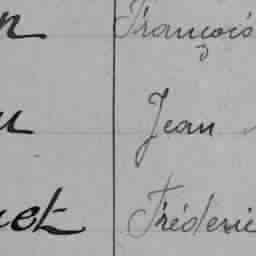 n François
u Jean
uet Frédéric